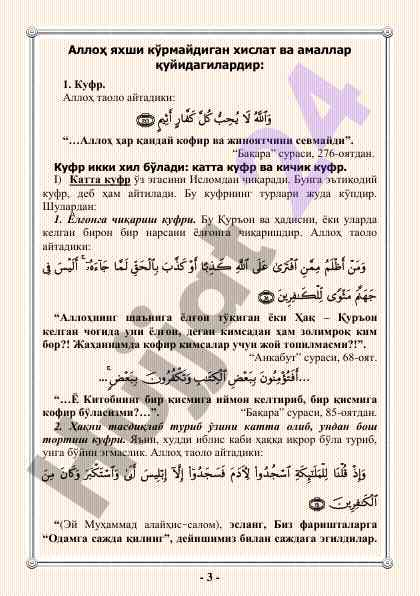 Аллоҳ яхши кўрмайдиган хислат ва амаллар
қуйидагилардир:
1. Куфр.
Аллоҳ таоло айтадики:
وَٱللَّهُ لَا يُحِبُّ كُلَّ كَفَّارٍ أَثِيمٍ ﴿٢٧٦﴾
“…Аллоҳ ҳар қандай кофир ва жиноятчини севмайди”.
“Бақара” сураси, 276-оятдан.
Куфр икки хил бўлади: катта куфр ва кичик куфр.
I) Катта куфр ўз эгасини Исломдан чиқаради. Бунга эътикодий
куфр, деб ҳам айтилади. Бу куфрнинг турлари жуда кўпдир.
Шулардан:
1. Ёлғонга чиқариш куфри. Бу Қуръон ва ҳадисни, ёки уларда
келган бирон бир нарсани ёлғонга чиқаришдир. Аллоҳ таоло
айтадики:
وَمَنْ أَظْلَمُ مِمَّنِ ٱفْتَرَىٰ عَلَى ٱللَّهِ كَذِبًا أَوْ كَذَّبَ بِٱلْحَقِّ لَمَّا جَآءَهُۥٓ ۚ أَلَيْسَ فِى
جَهَنَّمَ مَثْوًى لِّلْكَٰفِرِينَ ﴿٦٨﴾
“Аллоҳнинг шаънига ёлғон тўқиган ёки Ҳақ – Қуръон
келган чоғида уни ёлғон, деган кимсадан ҳам золимроқ ким
бор?! Жаҳаннамда кофир кимсалар учун жой топилмасми?!”.
“Анкабут” сураси, 68-оят.
...أَفَتُؤْمِنُونَ بِبَعْضِ ٱلْكِتَٰبِ وَتَكْفُرُونَ بِبَعْضٍ ۚ...
“…Ё Китобнинг бир қисмига иймон келтириб, бир қисмига
кофир бўласизми?…”. “Бақара” сураси, 85-оятдан.
2. Ҳақни тасдиқлаб туриб ўзини катта олиб, ундан бош
тортиш куфри. Яъни, худди иблис каби ҳаққа иқрор бўла туриб,
унга бўйин эгмаслик. Аллоҳ таоло айтадики:
وَإِذْ قُلْنَا لِلْمَلَٰٓئِكَةِ ٱسْجُدُوا۟ لِءَادَمَ فَسَجَدُوٓا۟ إِلَّآ إِبْلِيسَ أَبَىٰ وَٱسْتَكْبَرَ وَكَانَ مِنَ
ٱلْكَٰفِرِينَ ﴿٣٤﴾
“(Эй Муҳаммад алайҳис-салом), эсланг, Биз фаришталарга
“Одамга сажда қилинг”, дейишимиз билан саждага эгилдилар.
- 3 -
Hujjat 24